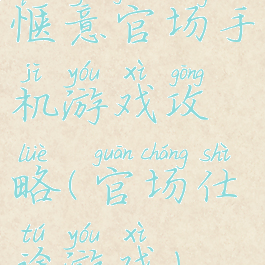 惬意官场手
jī yóu xì gōng
机游戏攻
lüè guān cháng shì
略(官场仕
tú yóu xì
途游戏)